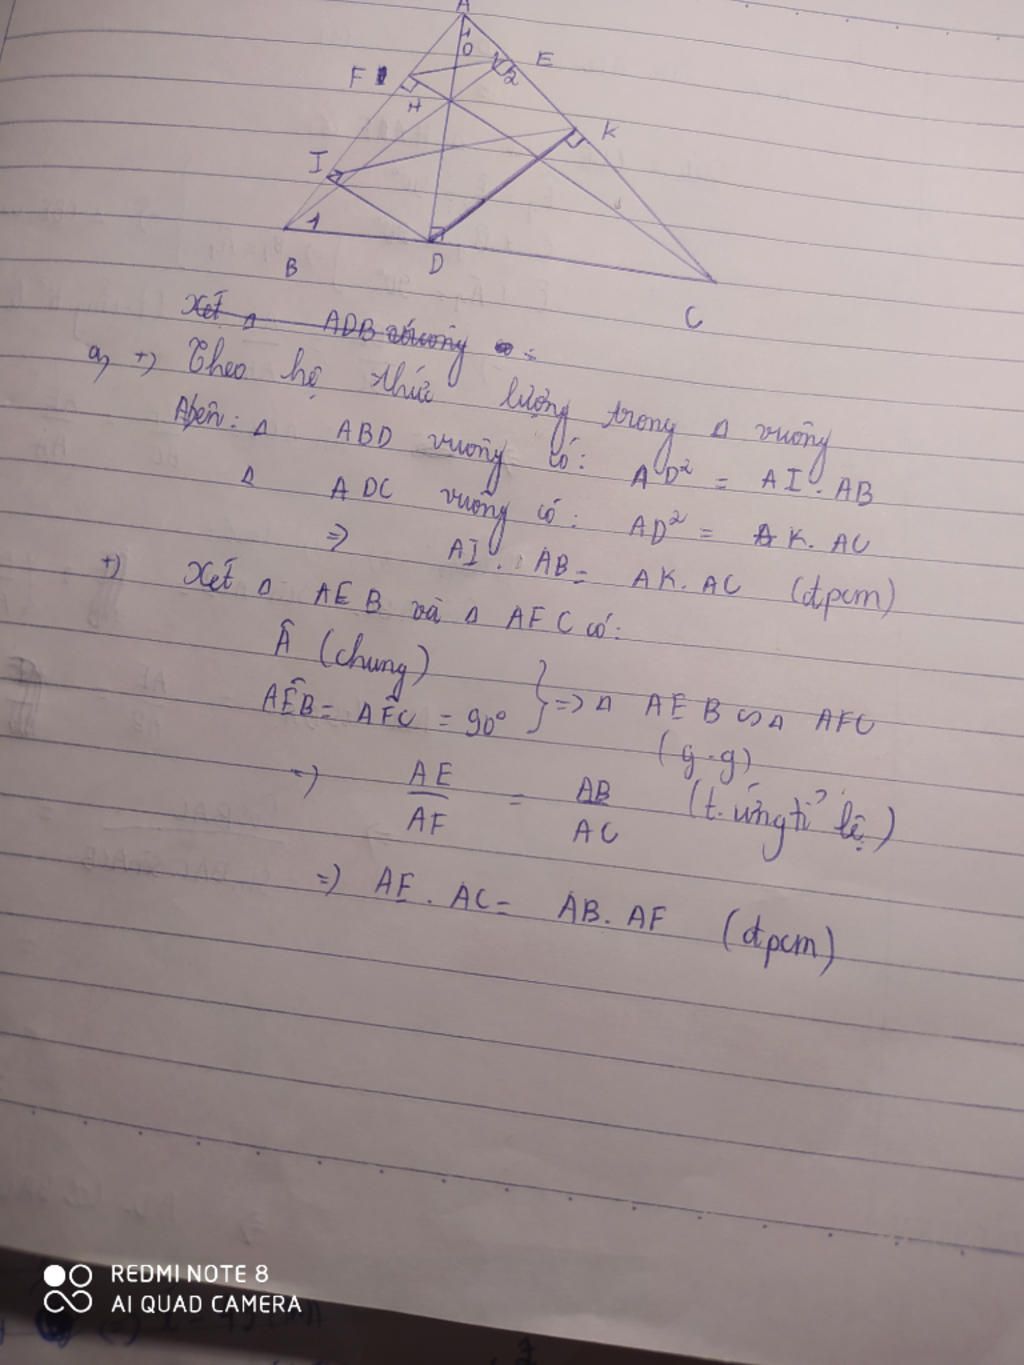 A
1
O
1
E
2
F
H
K
I
1
B
D
C
Xét Δ ADB vuông
a, +) Theo hệ thức lượng trong Δ vuông
Δ ABD vuông có: AD² = AI. AB
Δ ADC vuông có: AD² = AK. AC
=> AI. AB = AK. AC (đpcm)
+) Xét Δ AEB và Δ AFC có:
Â (chung)
AÊB = AF̂C = 90° } => Δ AEB ∽ Δ AFC
(g.g)
=> AE/AF = AB/AC (t. ứng tỉ lệ)
=> AE. AC = AB. AF (đpcm)
REDMI NOTE 8
AI QUAD CAMERA